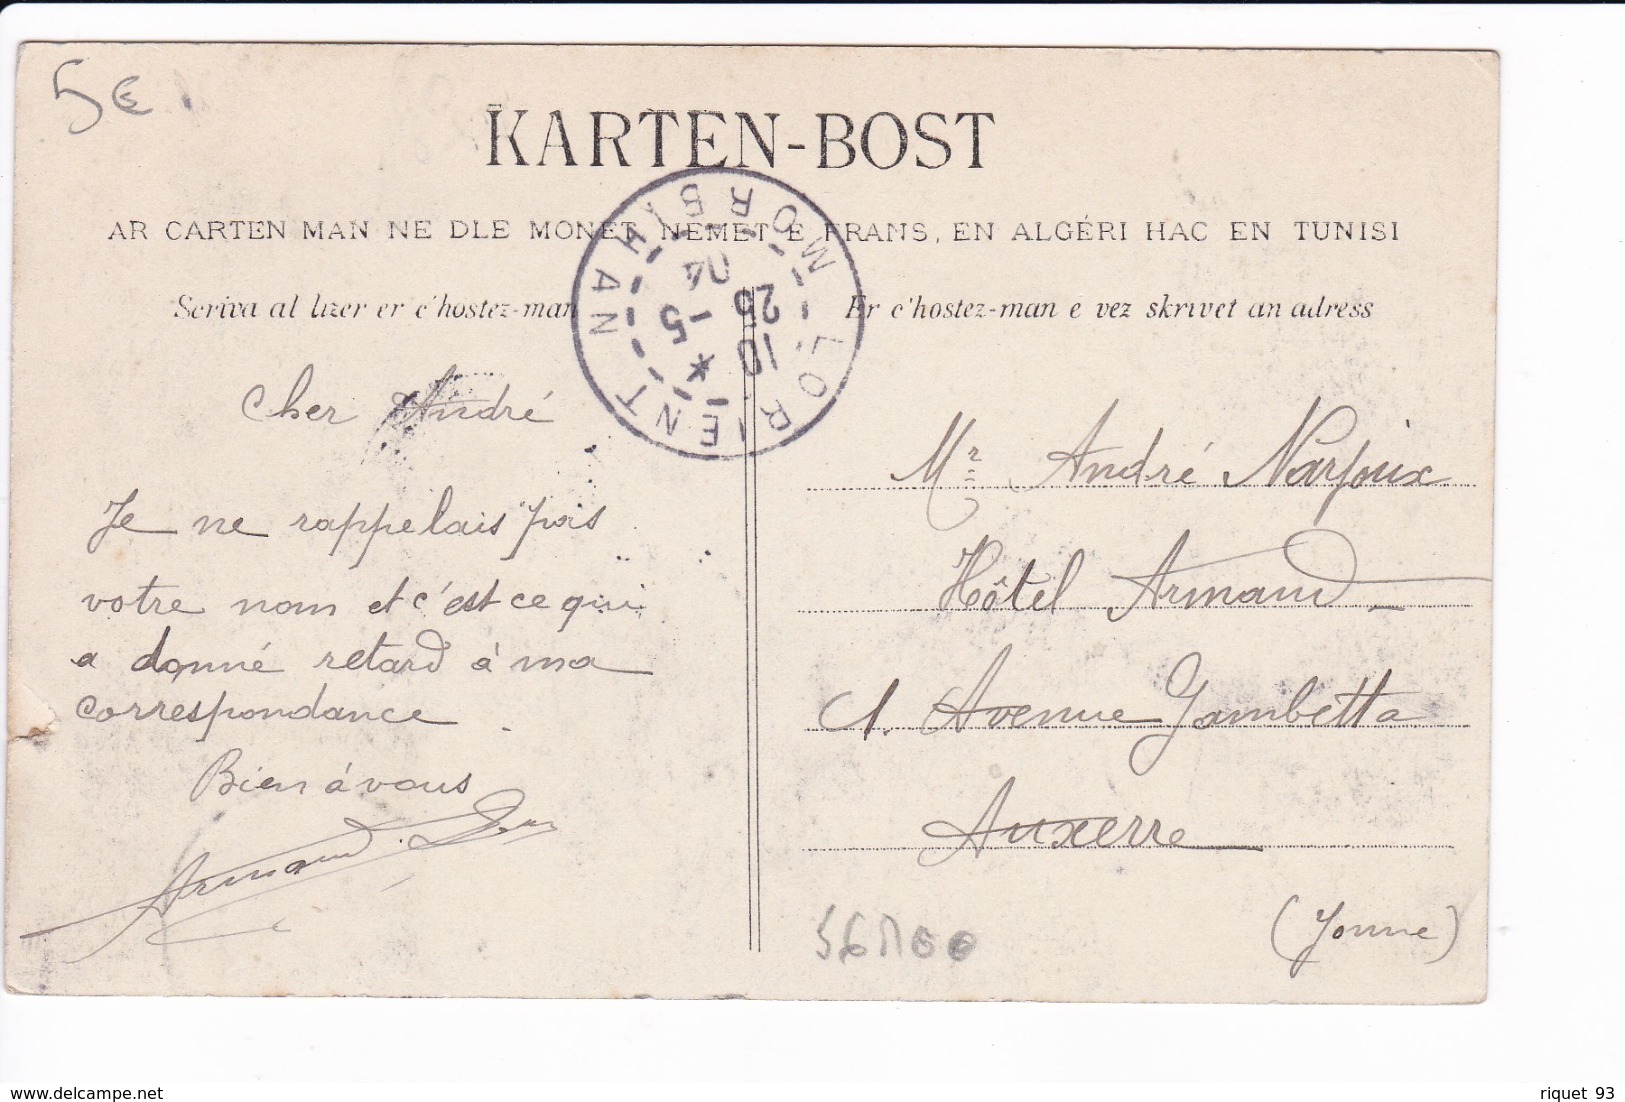 5€
KARTEN-BOST
AR CARTEN MAN NE DLE MONET NEMET E FRANS, EN ALGÉRI HAC EN TUNISI
Scriva al lizer er c'hostez-man
Er c'hostez-man e vez skrivet an adress
LORIENT * MORBIHAN
10
25 -5
04
Cher André
Je ne rappelais pas
votre nom et c'est ce qui
a donné retard à ma
correspondance
Bien à vous
Armand
Mr André Narjoux
Hôtel Armand
1. Avenue Gambetta
Auxerre
(Yonne)
riquet 93